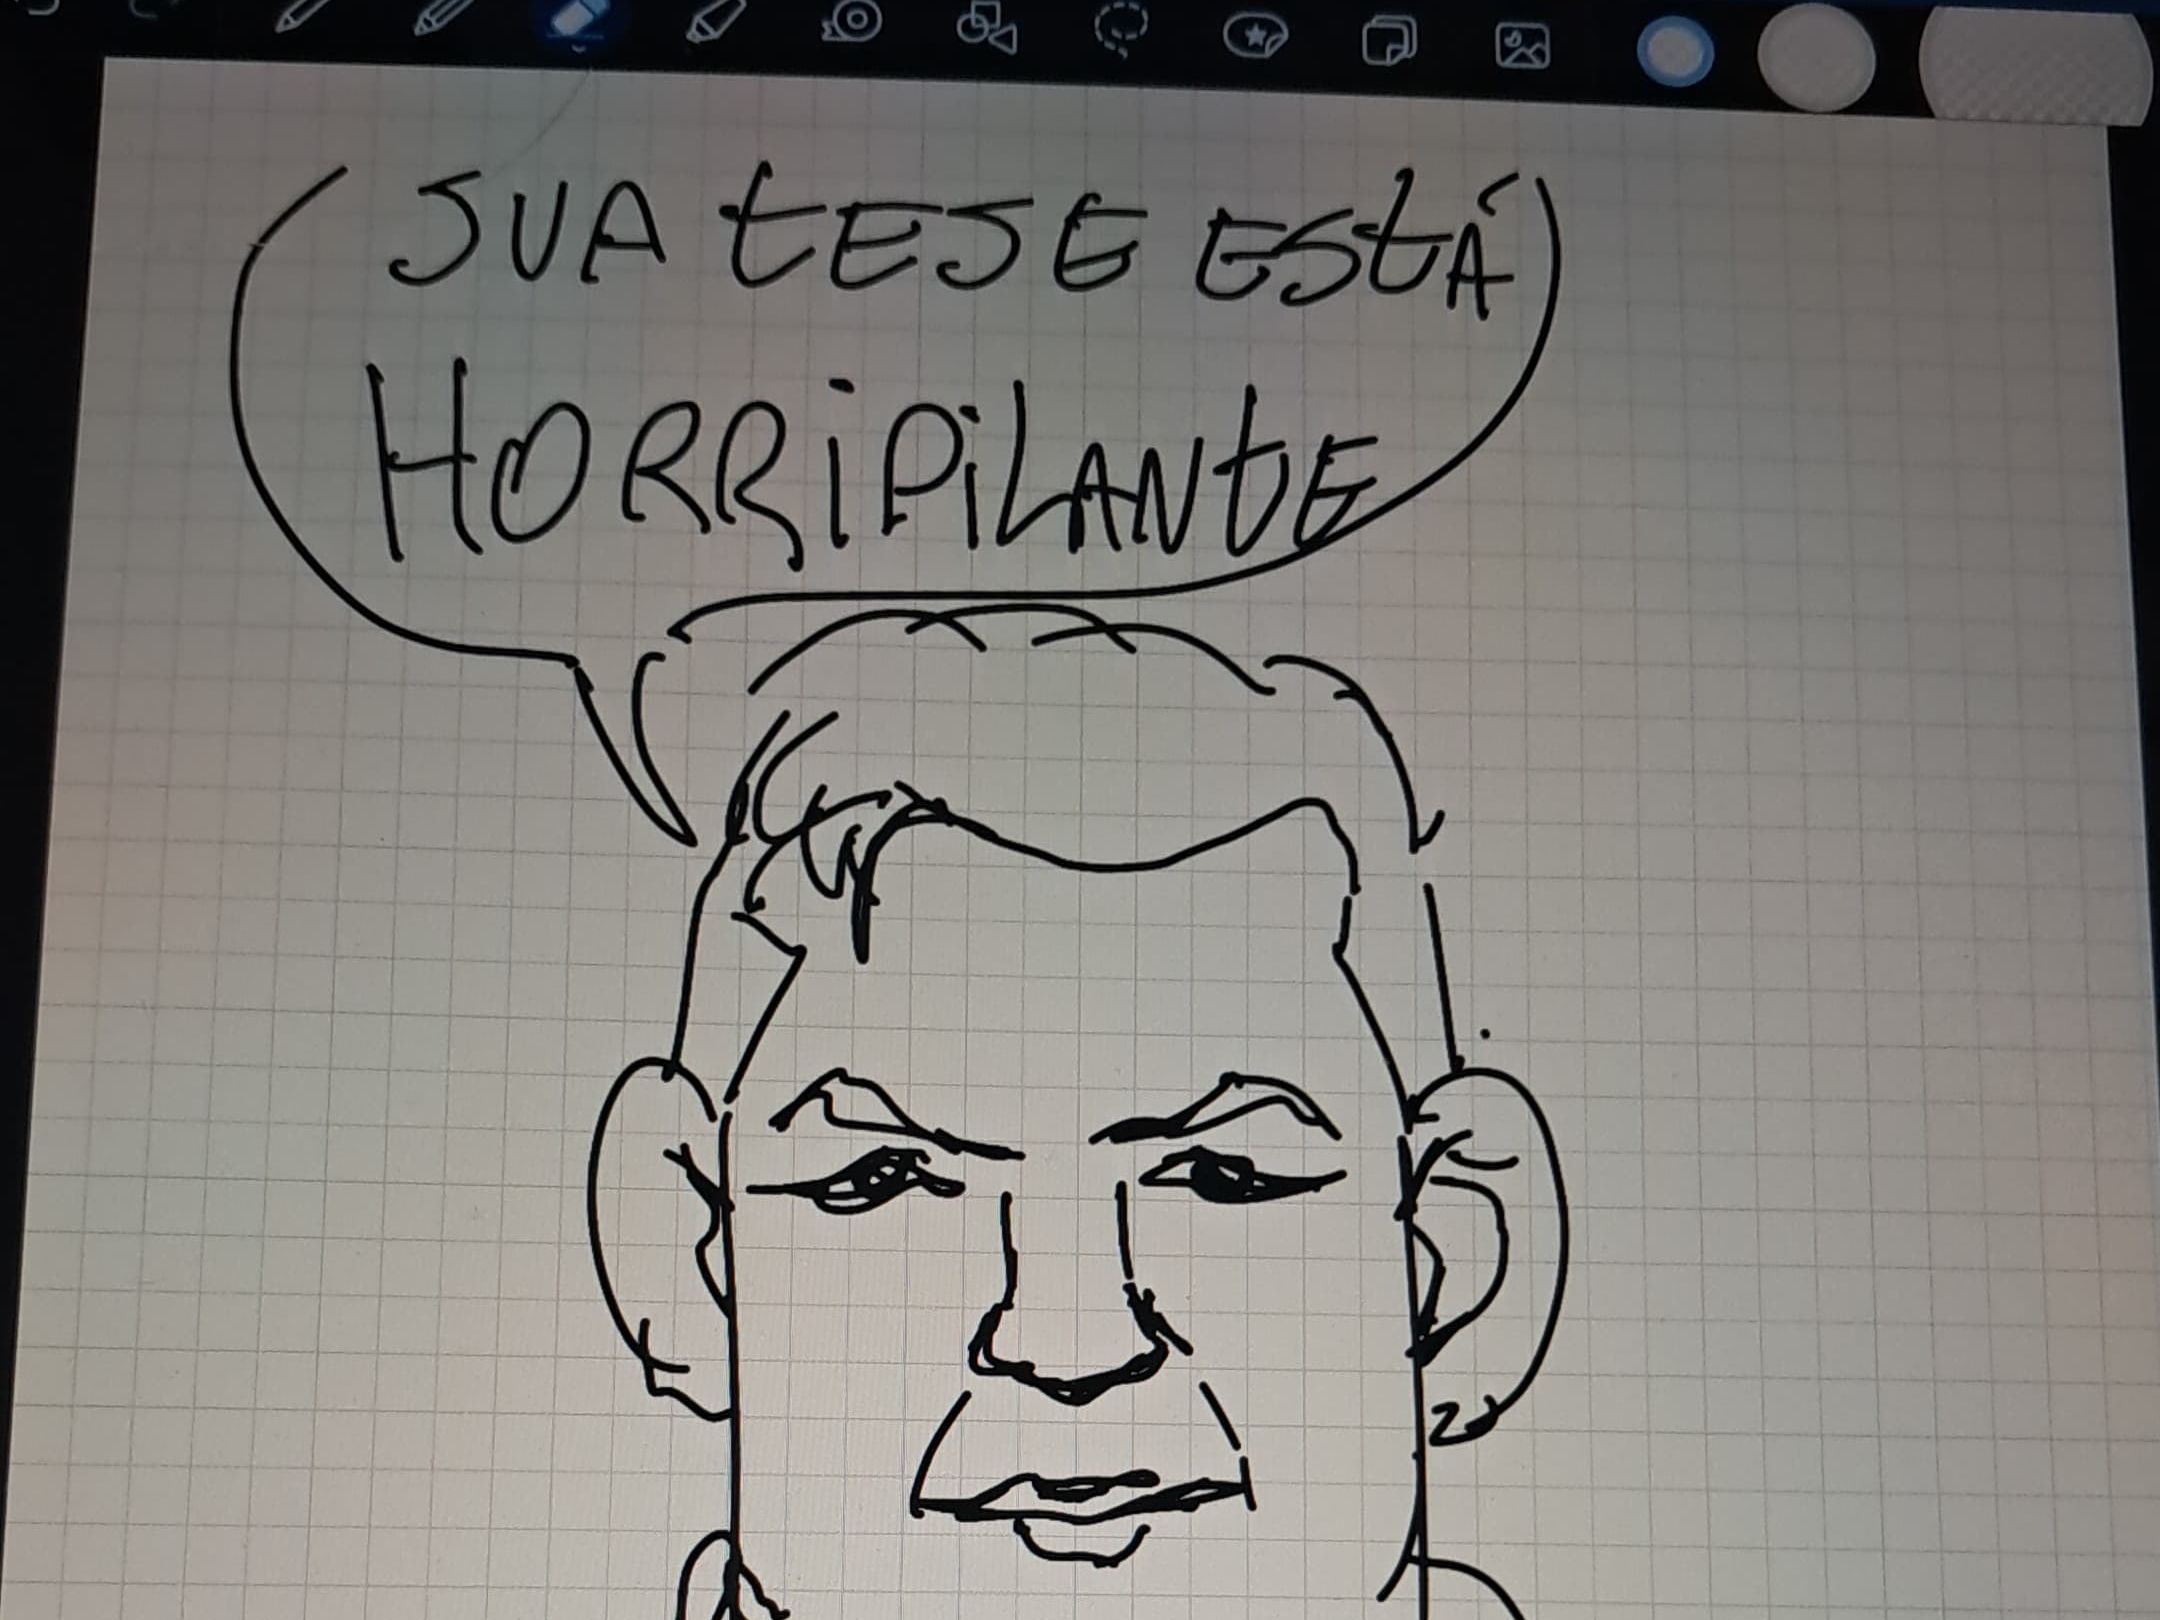 SUA tESE EStÁ
HORRiPiLANtE